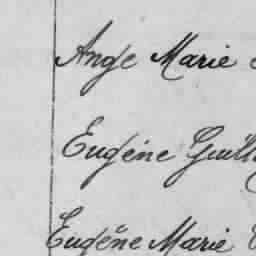 Ange Marie
Eugène
Eugène Marie